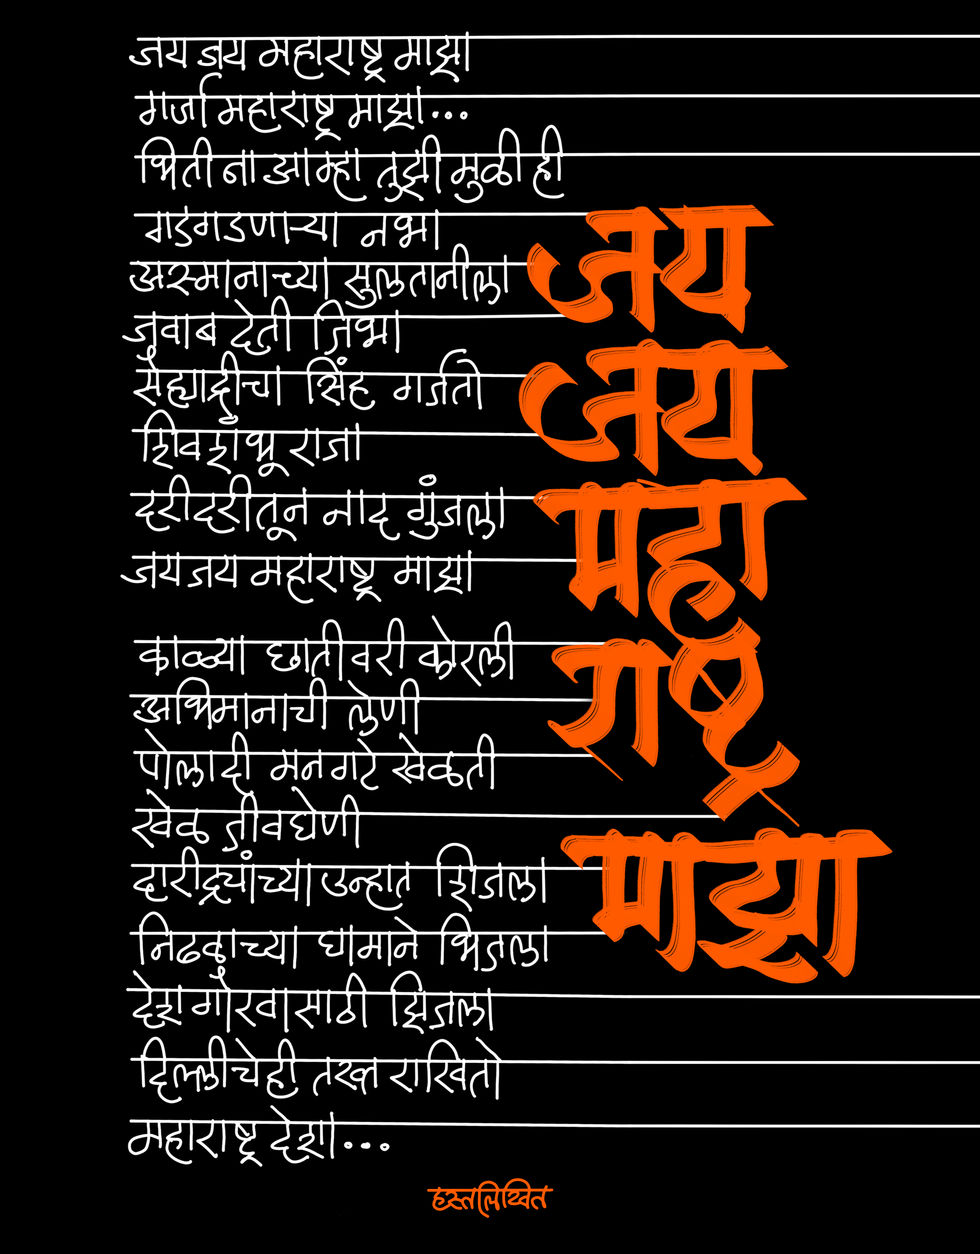 जय जय महाराष्ट्र माझा
गर्जा महाराष्ट्र माझा...
भिती ना आम्हा तुझी मुळी ही
गडगडणाऱ्या नभा
अस्मानाच्या सुलतानीला
जवाब देती जिभा
सह्याद्रीचा सिंह गर्जतो
शिवशंभू राजा
दरीदरीतून नाद गुंजला
जय जय महाराष्ट्र माझा
काळ्या छातीवरी कोरली
अभिमानाची लेणी
पोलादी मनगटे खेळती
खेळ जीवघेणी
दारीद्र्याच्या उन्हात शिजला
निढळाच्या घामाने भिजला
देशगौरवासाठी झिजला
दिल्लीचेही तख्त राखितो
महाराष्ट्र देशा...
जय
जय
महा
राष्ट्र
माझा
हस्तलिखित